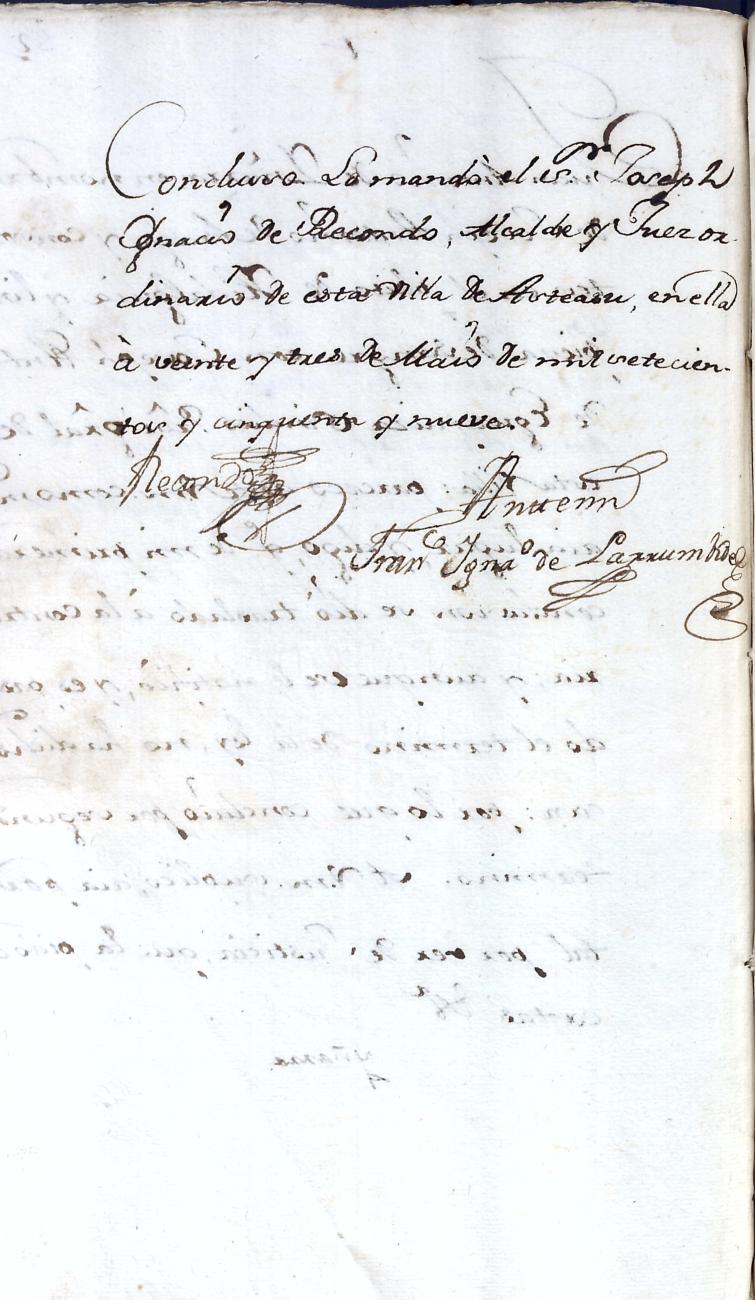 Concluso. Lo mandò el Sr. Joseph
Ygnacio de Recondo, Alcalde y Juez or-
dinario de esta Villa de Asteasu, en ella
à veinte y tres de Maio de mil setecien-
tos y cinquenta y nueve.
Recondo
Ante mi
Franco Ygnao de Larrumbide